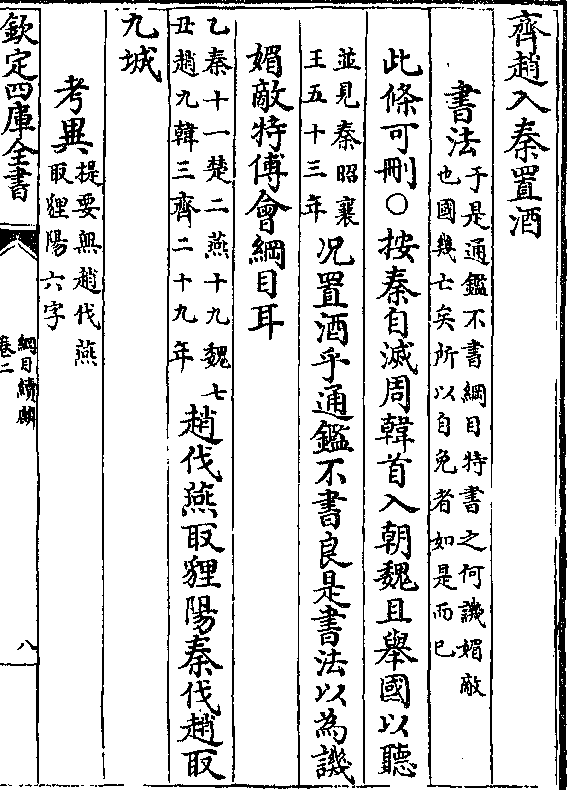 齊趙入秦置酒
書法于是通鑑不書綱目特書之何譏媚敵
也國幾亡矣所以自免者如是而已
此條可刪○按秦自滅周韓首入朝魏且舉國以聽
並見秦昭襄
王五十三年况置酒乎通鑑不書良是書法以為譏
媚敵特傅會綱目耳
乙秦十一楚二燕十九魏七
丑趙九韓三齊二十九年趙伐燕取貍陽秦伐趙取
九城
考異提要無趙伐燕
取貍陽六字
欽定四庫全書
綱目續麟
卷二
八